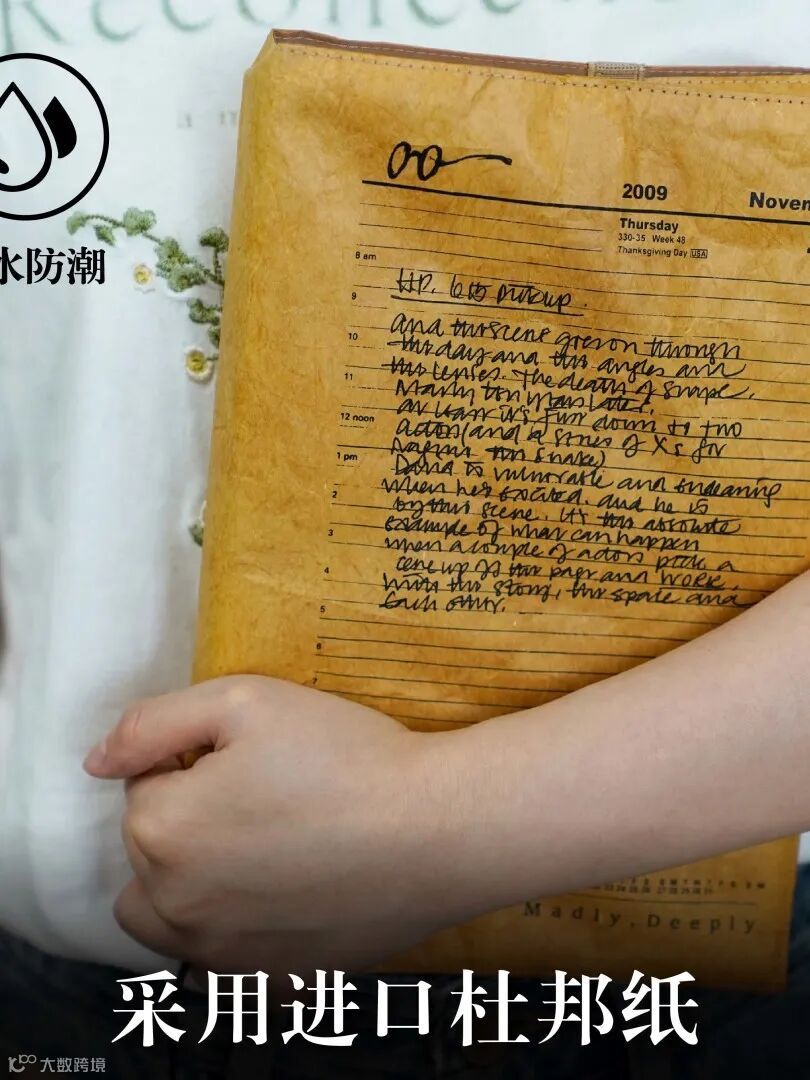 Reconnec
水防潮
2009 Novem
Thursday
330-35 Week 48
Thanksgiving Day USA
8 am
HP. 6
9
and this scene goes on through
10
the day and the angles and
the lenses. The death of Snape.
11
Nearly ten years later.
at least it's just down to two
12 noon
actors (and a series of Xs for
Nagini the snake)
1 pm
is vulnerable and endearing
when he's excited. and he is
2
by this scene. It's the absolute
example of what can happen
3
when a couple of actors pick a
scene up off the page and work
4
with the story, the space and
each other.
5
6
7
Madly, Deeply
采用进口杜邦纸
大数跨境